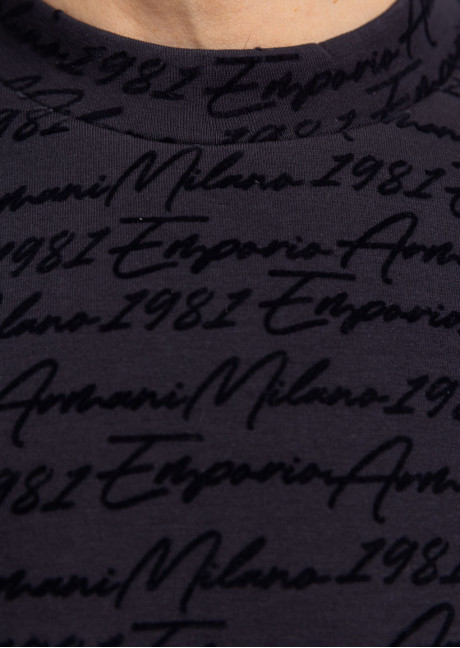 1981 Emporio A
981
1981
Armani Milano 1981
1981 Emporio Arm
Milano 1981 Emporio
Armani Milano 19
981 Emporio Arm
Armani Milano 1981